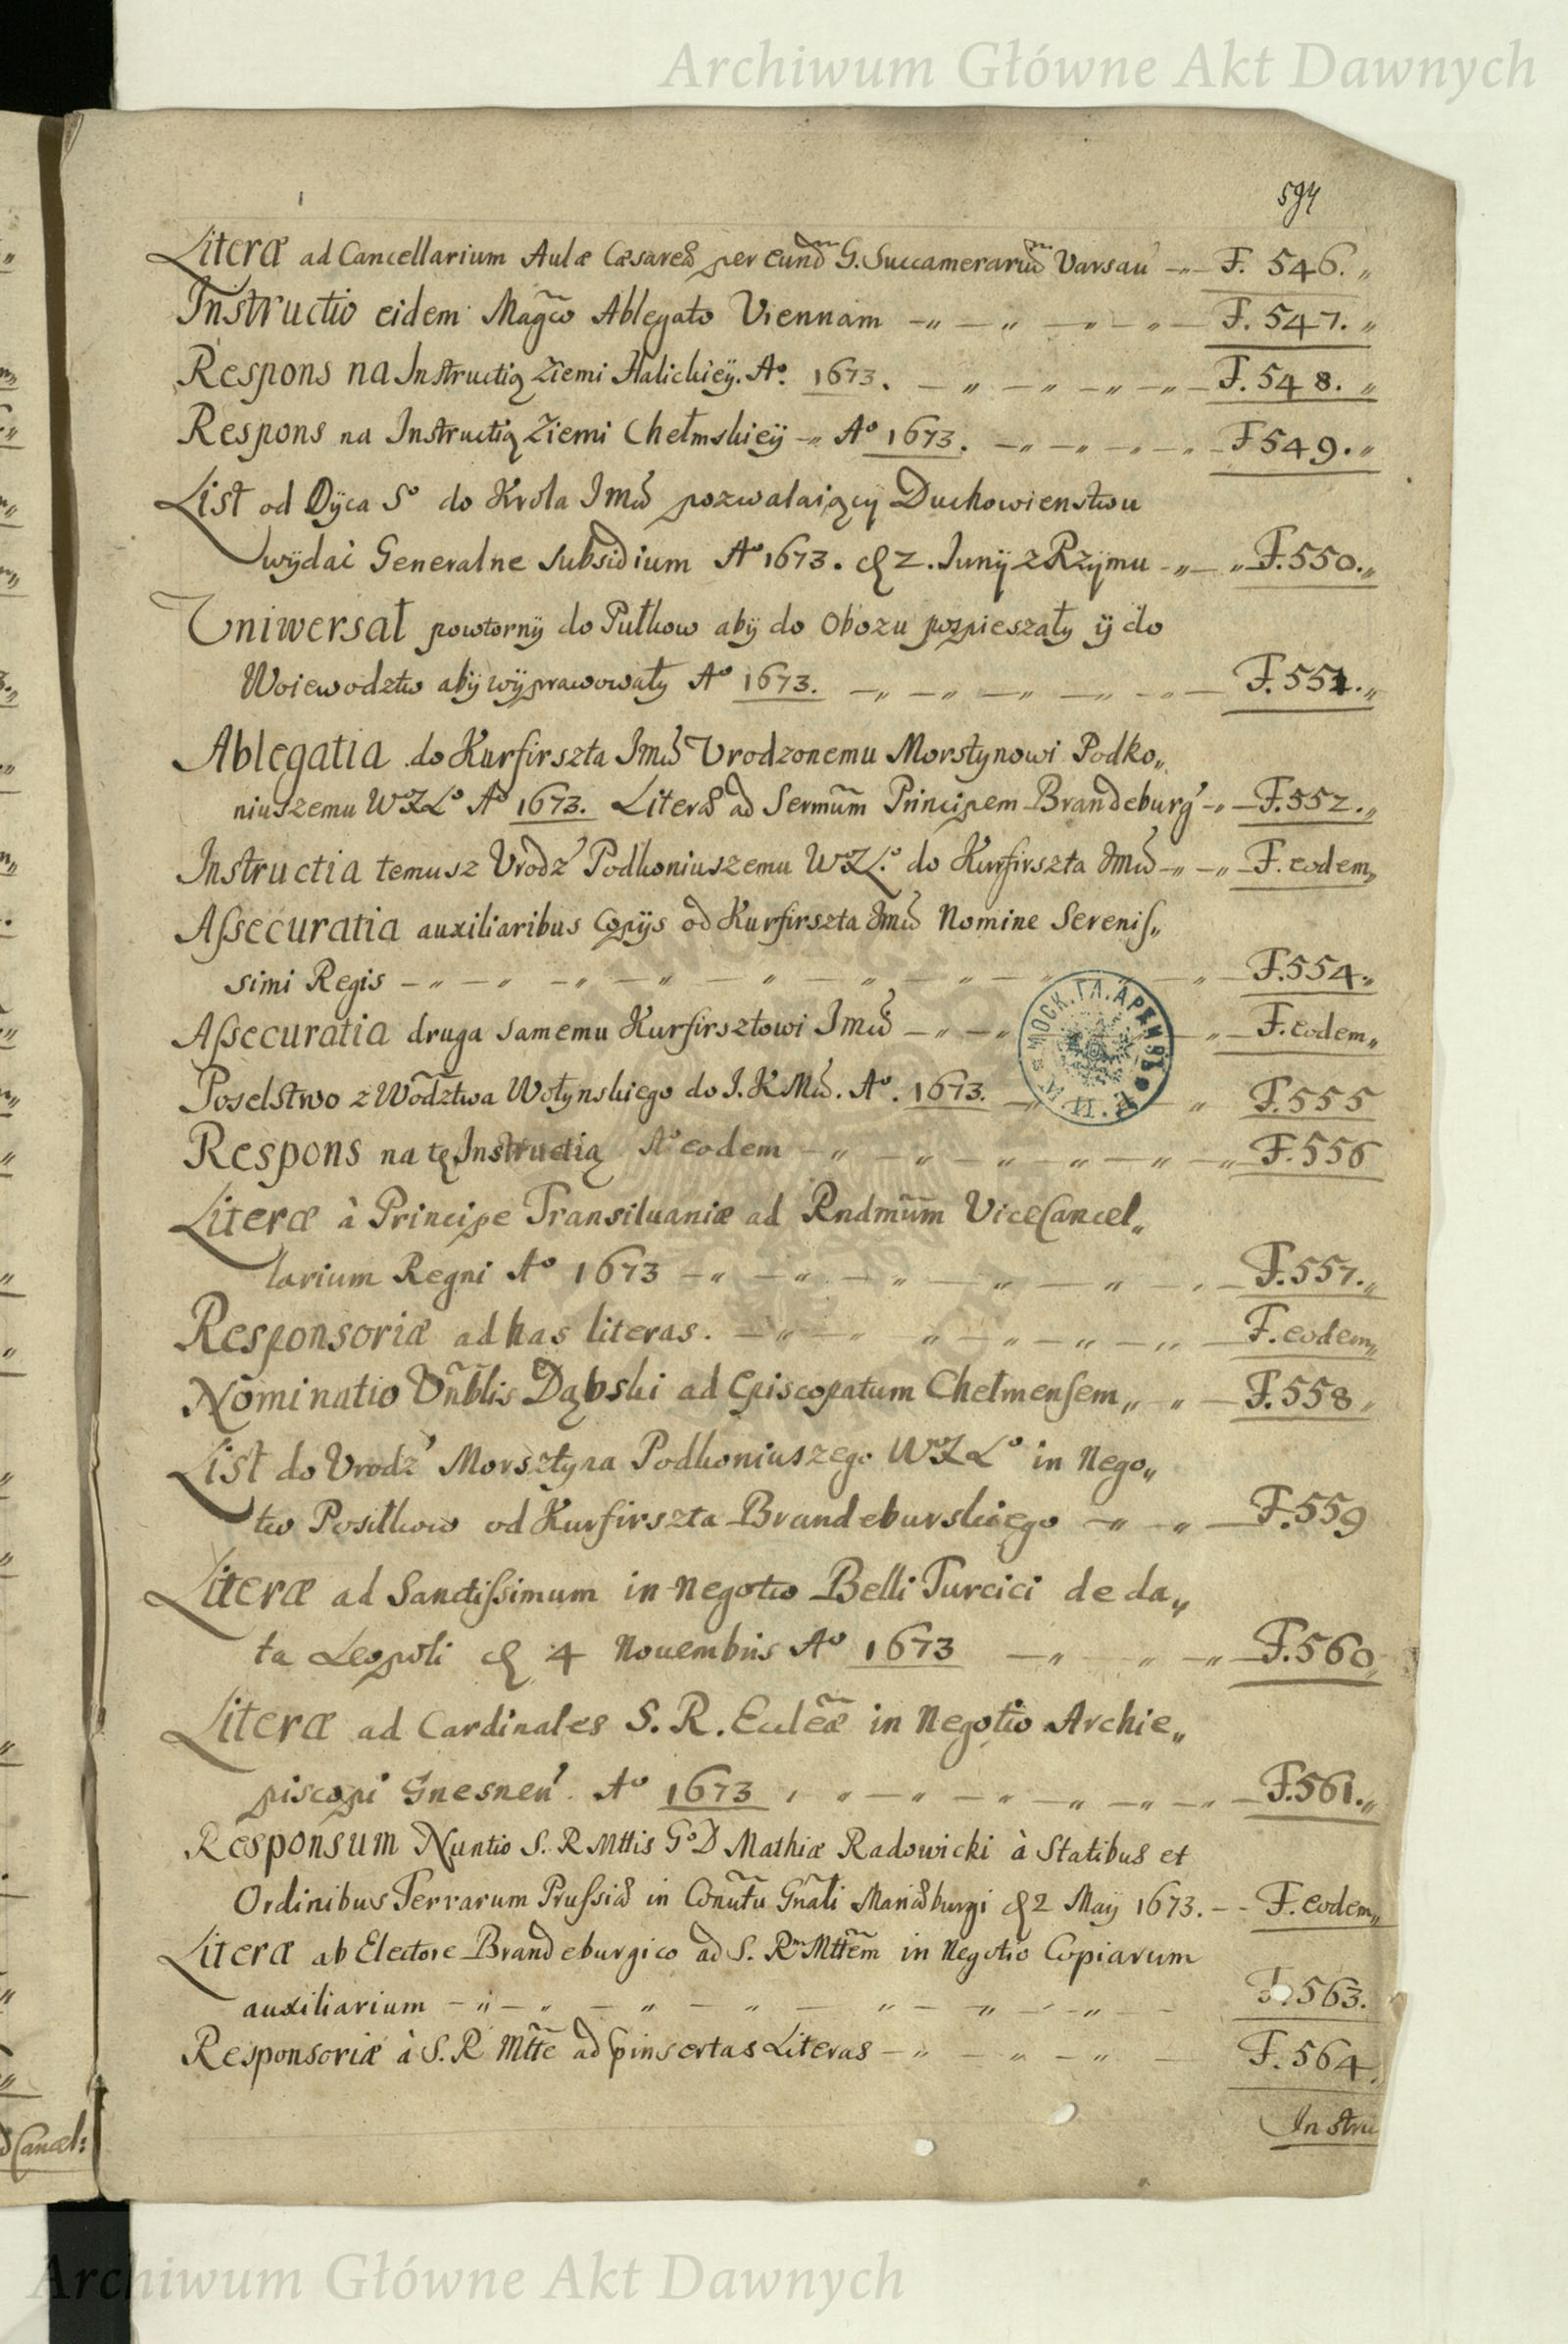 Archiwum Główne Akt Dawnych
594
Literæ ad Cancellarium Aulæ Cæsareæ per eundm G. Succamerariũ Varsau F. 546.
Instructio eidem Magco Ablegato Viennam F. 547.
Respons na Instructią Ziemi Halickiey. Aº. 1673. F. 548.
Respons na Instructią Ziemi Chełmskieÿ Aº 1673. F 549.
List od Oÿca Sº do Krola Jmci pozwalaiący Duchowienstwu
wÿdać Generalne subsidium Aº 1673. d 2. Junÿ z Rzÿmu F. 550.
Uniwersał powtornÿ do Pułkow abÿ do Obozu pospieszały ÿ do
Woiewodztw abÿ wÿprawowały Aº 1673. F. 551.
Ablegatia do Kurfirszta Jmci Urodzonemu Morstynowi Podko„
niuszemu WXLº Aº 1673. Literæ ad Sermũm Principem Brandeburg' F. 552.
Instructia temusz Vrodz' Podkoniuszemu WXL.º do Kurfirszta Jmci F. eodem
Assecuratia auxiliaribus Copijs od Kurfirszta Jmci Nomine Sereniſ„
simi Regis F. 554
Aſsecuratia druga samemu Kurfirsztowi Jmci F. eodem
МОСК. ГЛ. АРХИВЪ
Poselstwo z Wodztwa Wołynskiego do J. K Mci. Aº. 1673. F. 555
Respons na tę Instructią Aº eodem F. 556
Literæ à Principe Transiluaniæ ad Rndmũm ViceCancel„
larium Regni Aº 1673 F. 557.
Responsoriæ ad has literas. F. eodem
Nominatio Vñblis Dąbski ad Episcopatum Chełmenſem F. 558
List do Vrodz' Morsztyna Podkoniuszego WXLº in Nego„
tio Posiłkow od Kurfirszta Brandeburskiego F. 559
Literæ ad Sanctiſsimum in negotio Belli Turcici de da„
ta Leopoli d 4 Nouembris Aº 1673 F. 560
Literæ ad Cardinales S. R. Eccleæ in Negotio Archie„
piscopi Gnesnen' Aº 1673 F. 561.
Responsum Nuntio S. R Mttis GºD Mathiæ Radowicki à Statibus et
Ordinibus Terrarum Pruſsiæ in Conũtu Gñali Mariæburgi d 2 Maÿ 1673. F. eodem
Literæ ab Electore Brandeburgico ad S. Rm Mttẽm in Negotio Copiarum
auxiliarium F. 563.
Responsoriæ à S. R Mtte ad Literas F. 564
Instru
Cancel:
Archiwum Główne Akt Dawnych